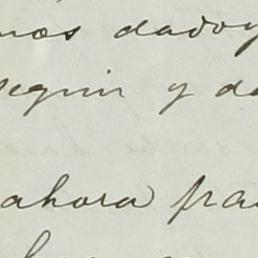 mos dadoy
seguir y da
ahora pa